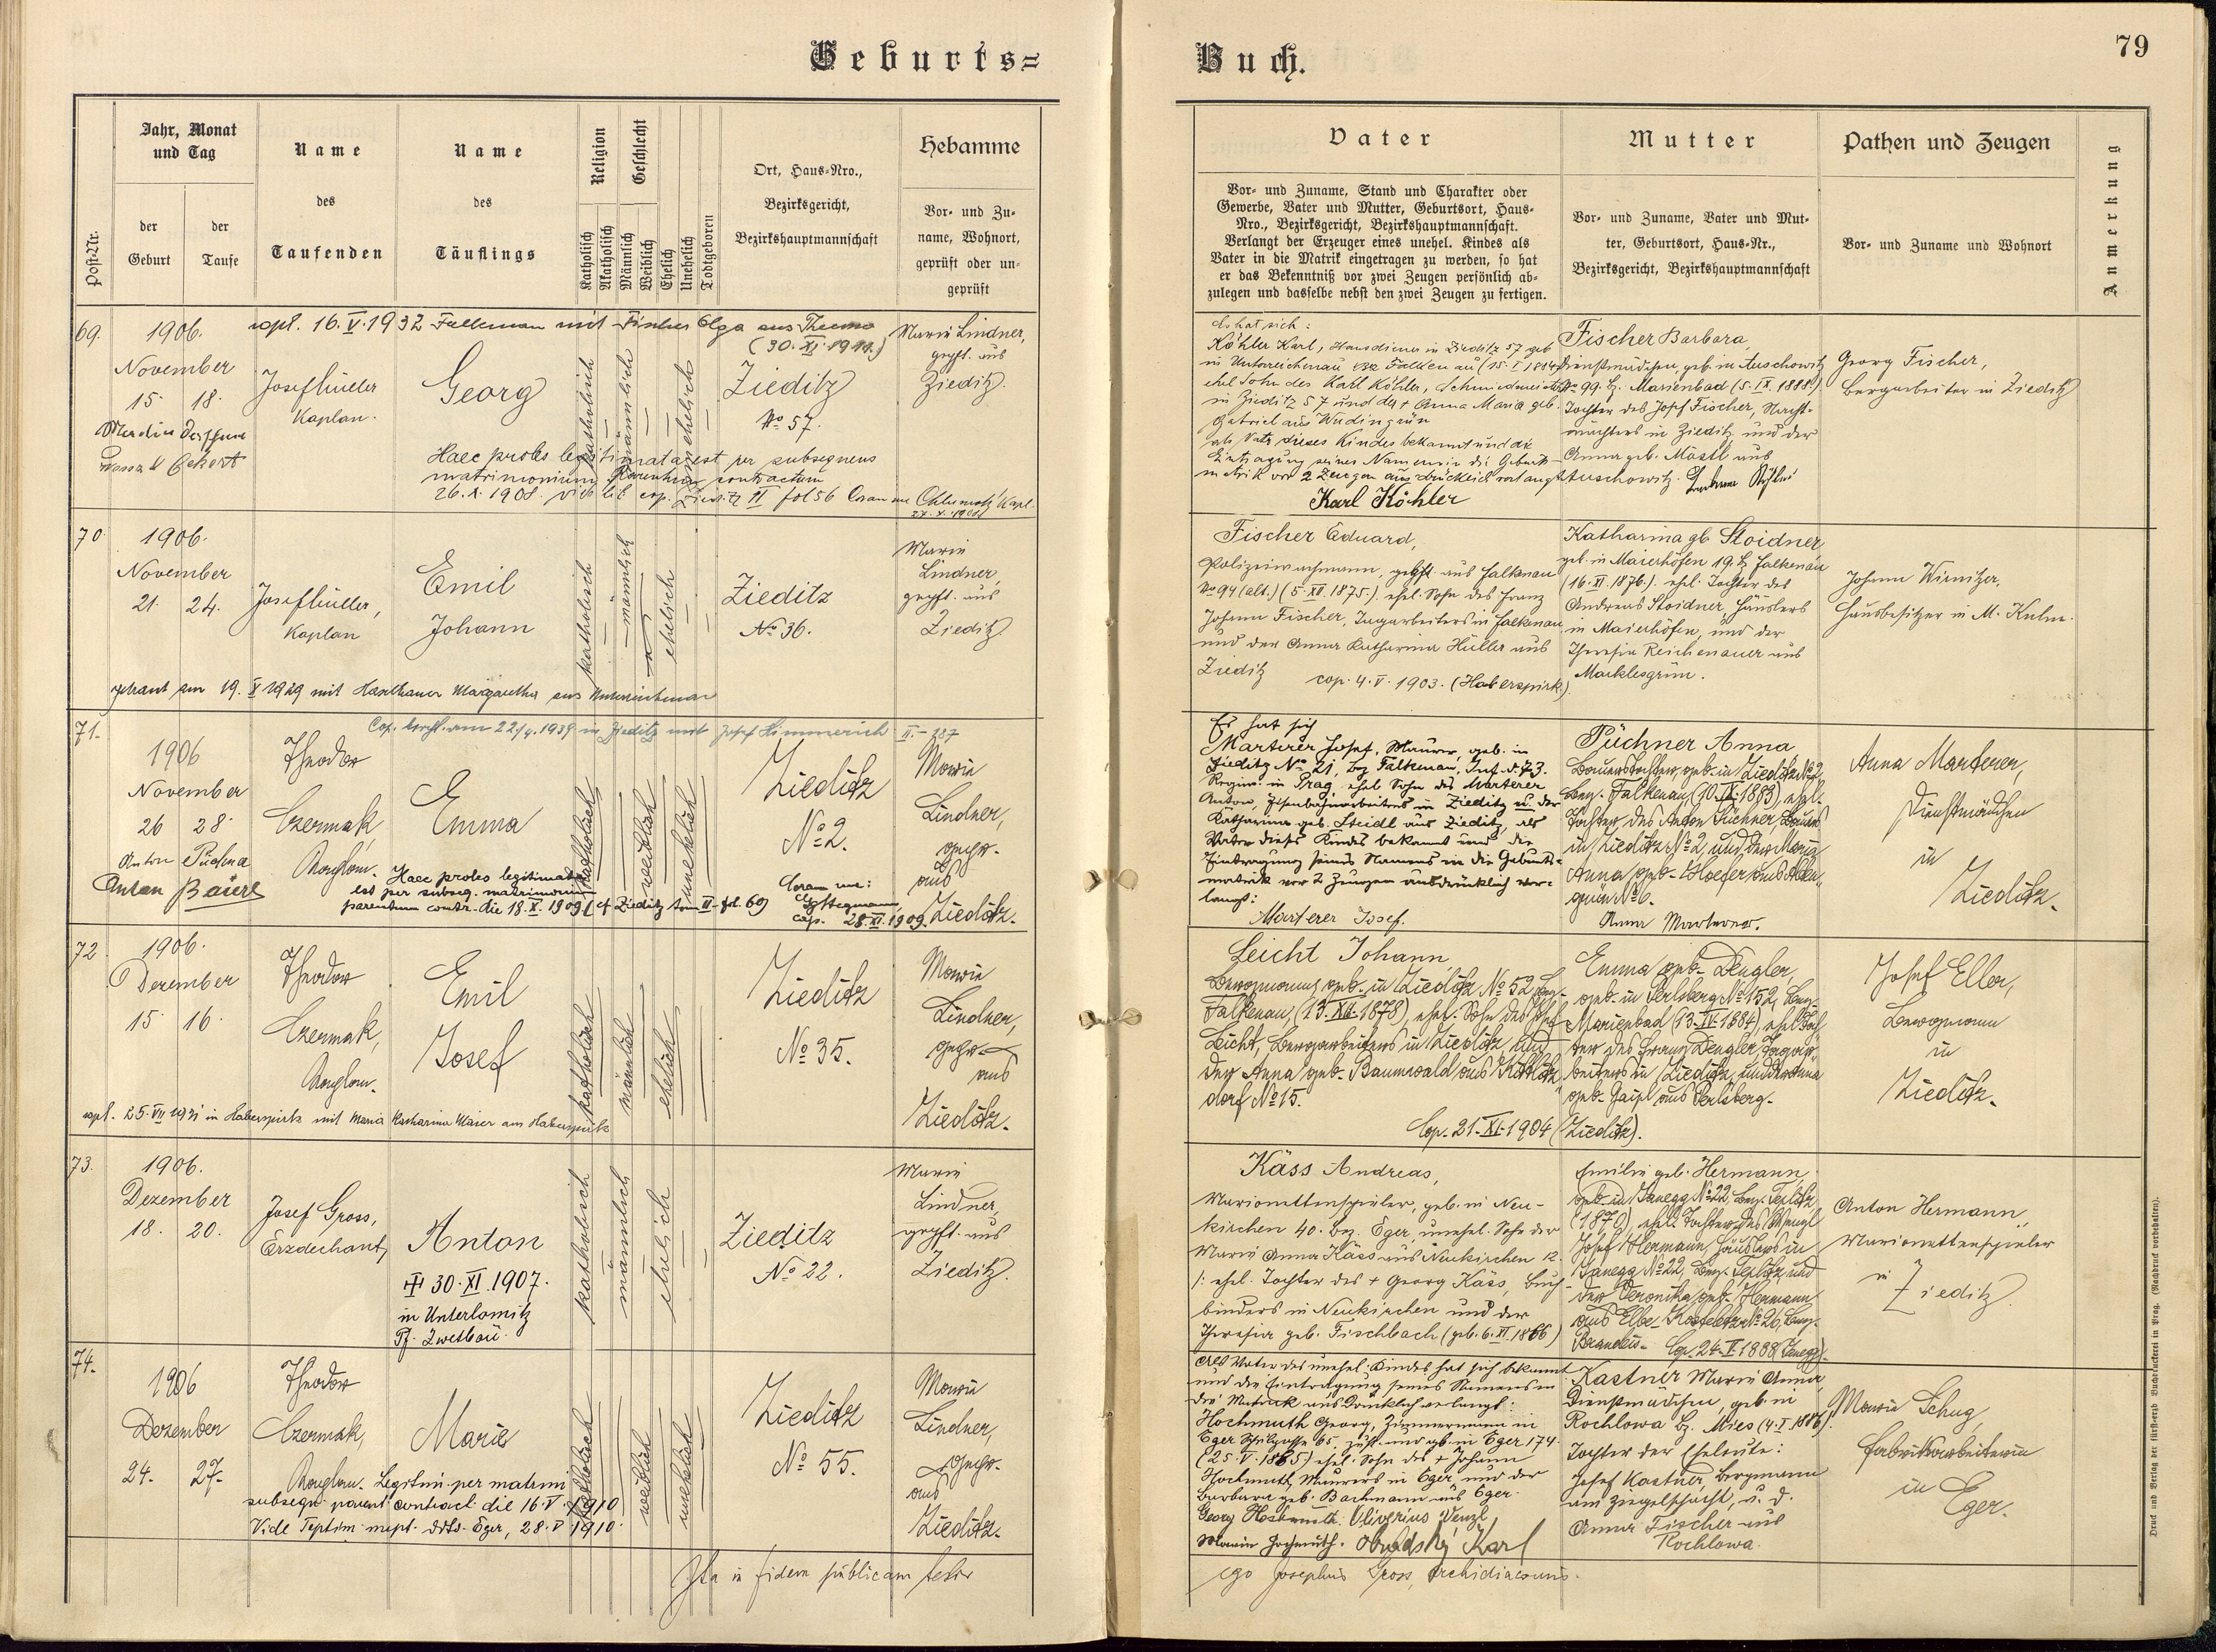 Geburts=
Buch.
79
Post-Nr.
Jahr, Monat
und Tag
der
Geburt
der
Taufe
Name
des
Taufenden
Name
des
Täuflings
Religion
Katholisch
Akatholisch
Geschlecht
Männlich
Weiblich
Ehelich
Unehelich
Todtgeboren
Ort, Haus-Nro.,
Bezirksgericht,
Bezirkshauptmannschaft
Hebamme
Vor- und Zu-
name, Wohnort,
geprüft oder un-
geprüft
Vater
Vor- und Zuname, Stand und Charakter oder
Gewerbe, Vater und Mutter, Geburtsort, Haus-
Nro., Bezirksgericht, Bezirkshauptmannschaft.
Verlangt der Erzeuger eines unehel. Kindes als
Vater in die Matrik eingetragen zu werden, so hat
er das Bekenntniß vor zwei Zeugen persönlich ab-
zulegen und dasselbe nebst den zwei Zeugen zu fertigen.
Mutter
Vor- und Zuname, Vater und Mut-
ter, Geburtsort, Haus-Nr.,
Bezirksgericht, Bezirkshauptmannschaft
Pathen und Zeugen
Vor- und Zuname und Wohnort
Anmerkung
69.
copl. 16.V.1932 Falkenau mit Fischer Olga aus
(30.XI.1911.)
1906.
November
15. 18.
Josef Müller
Kaplan.
Georg
katholisch
männlich
unehelich
Zieditz
No 57.
Marie Lindner,
geprft. aus
Zieditz.
Haec proles legitimata est per subsequens
matrimonium Parentum contractum
26.X.1908. vide lib cop. Zieditz II fol 56 Coram me Kapl.
27.X.1908
Es hat sich:
Köhler Karl, Hausdiener in Zieditz 57 geb
in Unterreichenau Bz Falkenau (15.I.1884)
ehel Sohn des Karl Köhler, Schmiedmeister
in Zieditz 57 und der + Anna Maria geb.
Gabriel aus Wudingrün
als Vater dieses Kindes bekannt und die
Eintragung seines Namens in die Geburts-
matrik vor 2 Zeugen ausdrücklich verlangt
Karl Köhler
Fischer Barbara,
Dienstmädchen, geb. in Auschowitz
No 99 Bz. Marienbad (5.IX.1888.)
Tochter des Josef Fischer, Nacht-
wächters in Zieditz und der
Anna geb. Mastl aus
Auschowitz.
Georg Fischer,
Bergarbeiter in Zieditz
70.
1906.
November
21. 24.
Josef Müller,
Kaplan
Emil
Johann
katholisch
männlich
ehelich
Zieditz
No 36.
Marie
Lindner,
geprft. aus
Zieditz.
getraut am 19.X 1929 mit Margaretha aus Unterreichenau
Fischer Eduard,
Polizeiwachmann, gebt. aus Falkenau
No 94 (alt.) (5.XII.1875.) ehel. Sohn des Franz
Johann Fischer, Tagarbeiters in Falkenau
und der Anna Katharina Hüller aus
Zieditz
cop. 4.V.1903. (Haberspirk)
Katharina gb. Stoidner
geb. in Maierhöfen 19. Bz Falkenau
(16.XI.1876.) ehel. Tochter des
Andreas Stoidner, Häuslers
in Maierhöfen, und der
Theresia Reichenauer aus
Marklesgrün.
Johann Wirnitzer,
Hausbesitzer in M. Kulm.
71.
Cop. kirchl. am 22/4.1939 in Zieditz mit Josef Himmerich II.-187
1906
November
26 28.
Anton Püchner
Theodor
Czermak,
Kaplan.
Emma
katholisch
weiblich
unehelich
Zieditz
No 2.
Marie
Lindner,
gepr.
aus
Zieditz.
Haec proles legitimata
est per subseq. matrimonium
parentum contr. die 18.X.1909 (cf Zieditz tom II fol. 69
Coram me:
Stegmann,
cap. 28.XI.1909.
Es hat sich
Marterer Josef, Maurer, geb. in
Zieditz No 21, Bez Falkenau, Inf. d. 73.
Regim. in Prag, ehel Sohn des Marterer
Anton, Eisenbahnarbeiters in Zieditz u. der
Katharina geb. Steidl aus Zieditz, als
Vater dieses Kindes bekannt und die
Eintragung seines Namens in die Geburts-
matrik vor 2 Zeugen ausdrücklich ver-
langt:
Marterer Josef.
Püchner Anna
Bauerstochter, geb. in Zieditz No 2
Bez. Falkenau, (20.IX.1883), ehel.
Tochter des Anton Püchner, Bauers
in Zieditz No 2, und der Maria
Anna geb. Hoefer aus
No 6.
Anna Marterer.
Anna Marterer,
Dienstmädchen
in
Zieditz.
72
1906.
Dezember
15. 16.
Theodor
Czermak,
Kaplan.
Emil
Josef
katholisch
männlich
ehelich
Zieditz
No 35.
Marie
Lindner,
gepr.
aus
Zieditz.
copl. 25.VII 1931 in Haberspirk mit Maria Katharina Maier aus Haberspirk
Leicht Johann,
Bergmann, geb. in Zieditz No 52 Bez.
Falkenau, (13.XII.1878), ehel. Sohn des Josef
Leicht, Bergarbeiters in Zieditz und
der Anna geb. Baumwald aus
dorf No 15.
Cop. 21.XI.1904 (Zieditz).
Emma geb. Dengler,
geb. in Perlsberg No 152, Bez.
Marienbad (13.IV.1884), ehel. Toch
ter des Franz Dengler, Tagar-
beiters in Zieditz, und der Anna
geb. Gaipl aus Perlsberg.
Josef Eller,
Bergmann
in
Zieditz.
73.
1906.
Dezember
18. 20.
Josef Gross,
Erzdechant,
Anton
30.XI.1907.
in Unterlomitz
Pf. Zwetbau.
katholisch
männlich
ehelich
Zieditz
No 22.
Marie
Lindner,
geprft. aus
Zieditz.
Käss Andreas,
Marionettenspieler, geb. in Neu-
kirchen 40. Bez. Eger, unehel. Sohn der
Marie Anna Käss aus Neukirchen 12.
/: ehel. Tochter des + Georg Käss, Buch-
binders in Neukirchen und der
Theresia geb. Fischbach (geb. 6.XI.1866)
Emilie geb. Hermann,
geb. in Janegg No 22, Bez. Teplitz,
(1870), ehel. Tochter des Wenzl
Josef Hermann, Häuslers in
Janegg No 22, Bez. Teplitz und
der Veronika geb. Hermann
aus Elbe-Kosteletz No 26, Bez.
Brandeis. Cop. 24.V.1888 (Janegg).
Anton Hermann,
Marionettenspieler
in
Zieditz.
74.
1906
Dezember
24. 27.
Theodor
Czermak,
Kaplan.
Marie
katholisch
weiblich
unehelich
Zieditz
No 55.
Marie
Lindner,
gepr.
aus
Zieditz.
Legitimi per matrim
subsequ. parent contract die 16.V.1910
Vide Teptim. nupt. ddto Eger, 28.V 1910.
Als Vater des unehel. Kindes hat sich bekannt
und die Eintragung seines Namens in
die Matrik ausdrücklich verlangt:
Hochmuth Georg, Zimmermann in
Eger 65, zust. und gb. in Eger 174.
(25.V.1865) ehel. Sohn des + Johann
Hochmuth, Maurers in Eger und der
Barbara geb. Bachmann aus Eger.
Georg Hochmuth. Oliverius Wenzl,
Marie Hochmuth. Karl
Kastner Marie Anna,
Dienstmädchen, geb. in
Rochlowa Bz. Mies (4.I.1886).
Tochter der Eheleute:
Josef Kastner, Bergmann
am Ziegelschacht, u. d.
Anna Fischer aus
Rochlowa.
Marie Schug,
Fabriksarbeiterin
in
Eger.
Ita in fidem publicam testor
ego Josephus Gross, Archidiaconus.
Druck und Verlag der fürsterzb. Buchdruckerei in Prag. (Nachdruck vorbehalten).